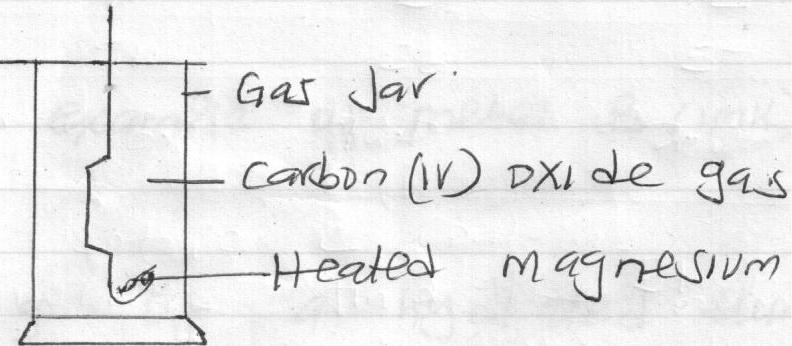 Gas Jar
Carbon (IV) oxide gas
Heated magnesium